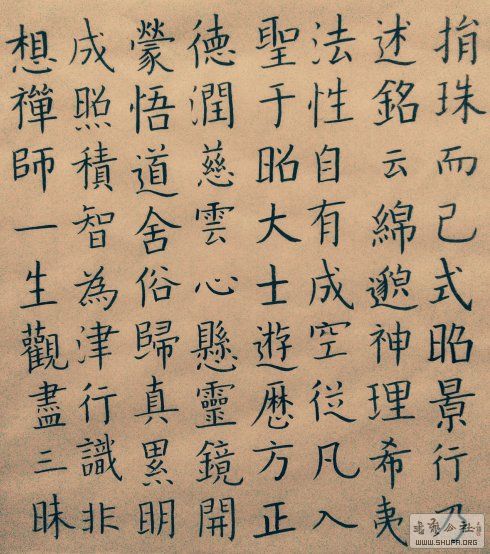 捐珠而已式昭景行乃
述銘云綿邈神理希夷
法性自有成空從凡入
聖于昭大士遊歷方正
德潤慈雲心懸靈鏡開
蒙悟道舍俗歸真累明
成照積智為津行識非
想禪師一生觀盡三昧
WWW.SHUFA.ORG